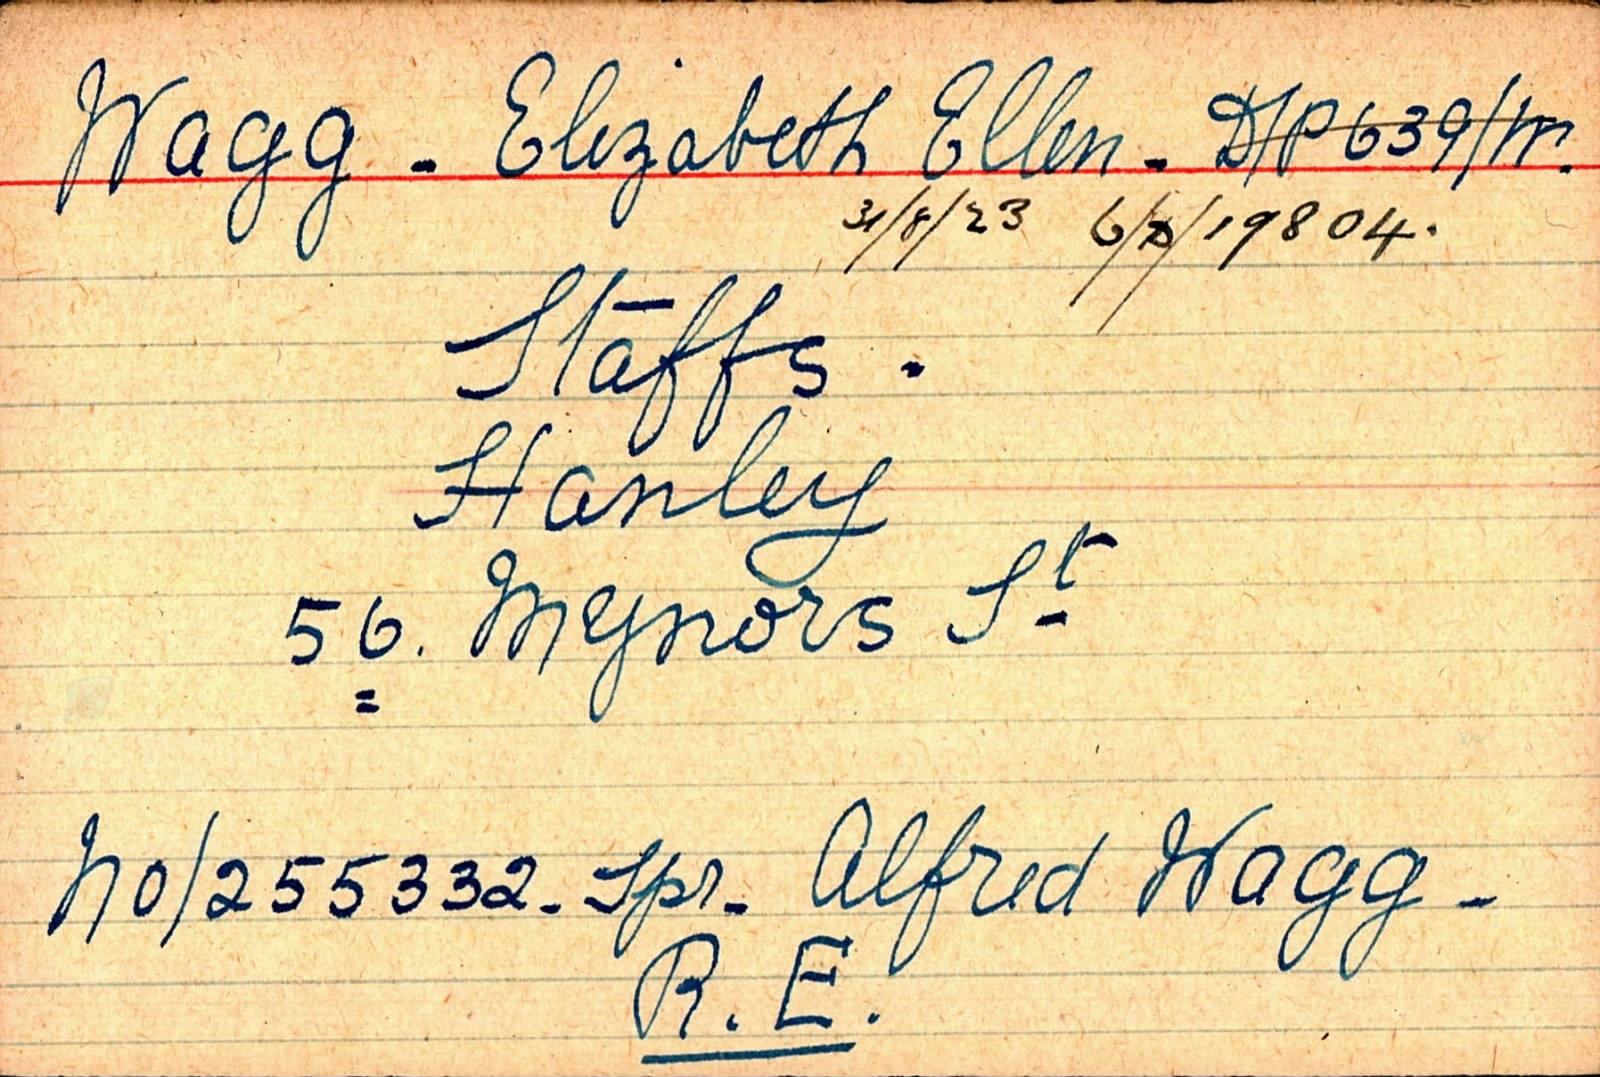 Wagg - Elizabeth Ellen - D/P 639/W.
31/8/23 6/D/19804.
Staffs.
Hanley
56. Mynors St
No/255332 - Spr - Alfred Wagg -
R.E.